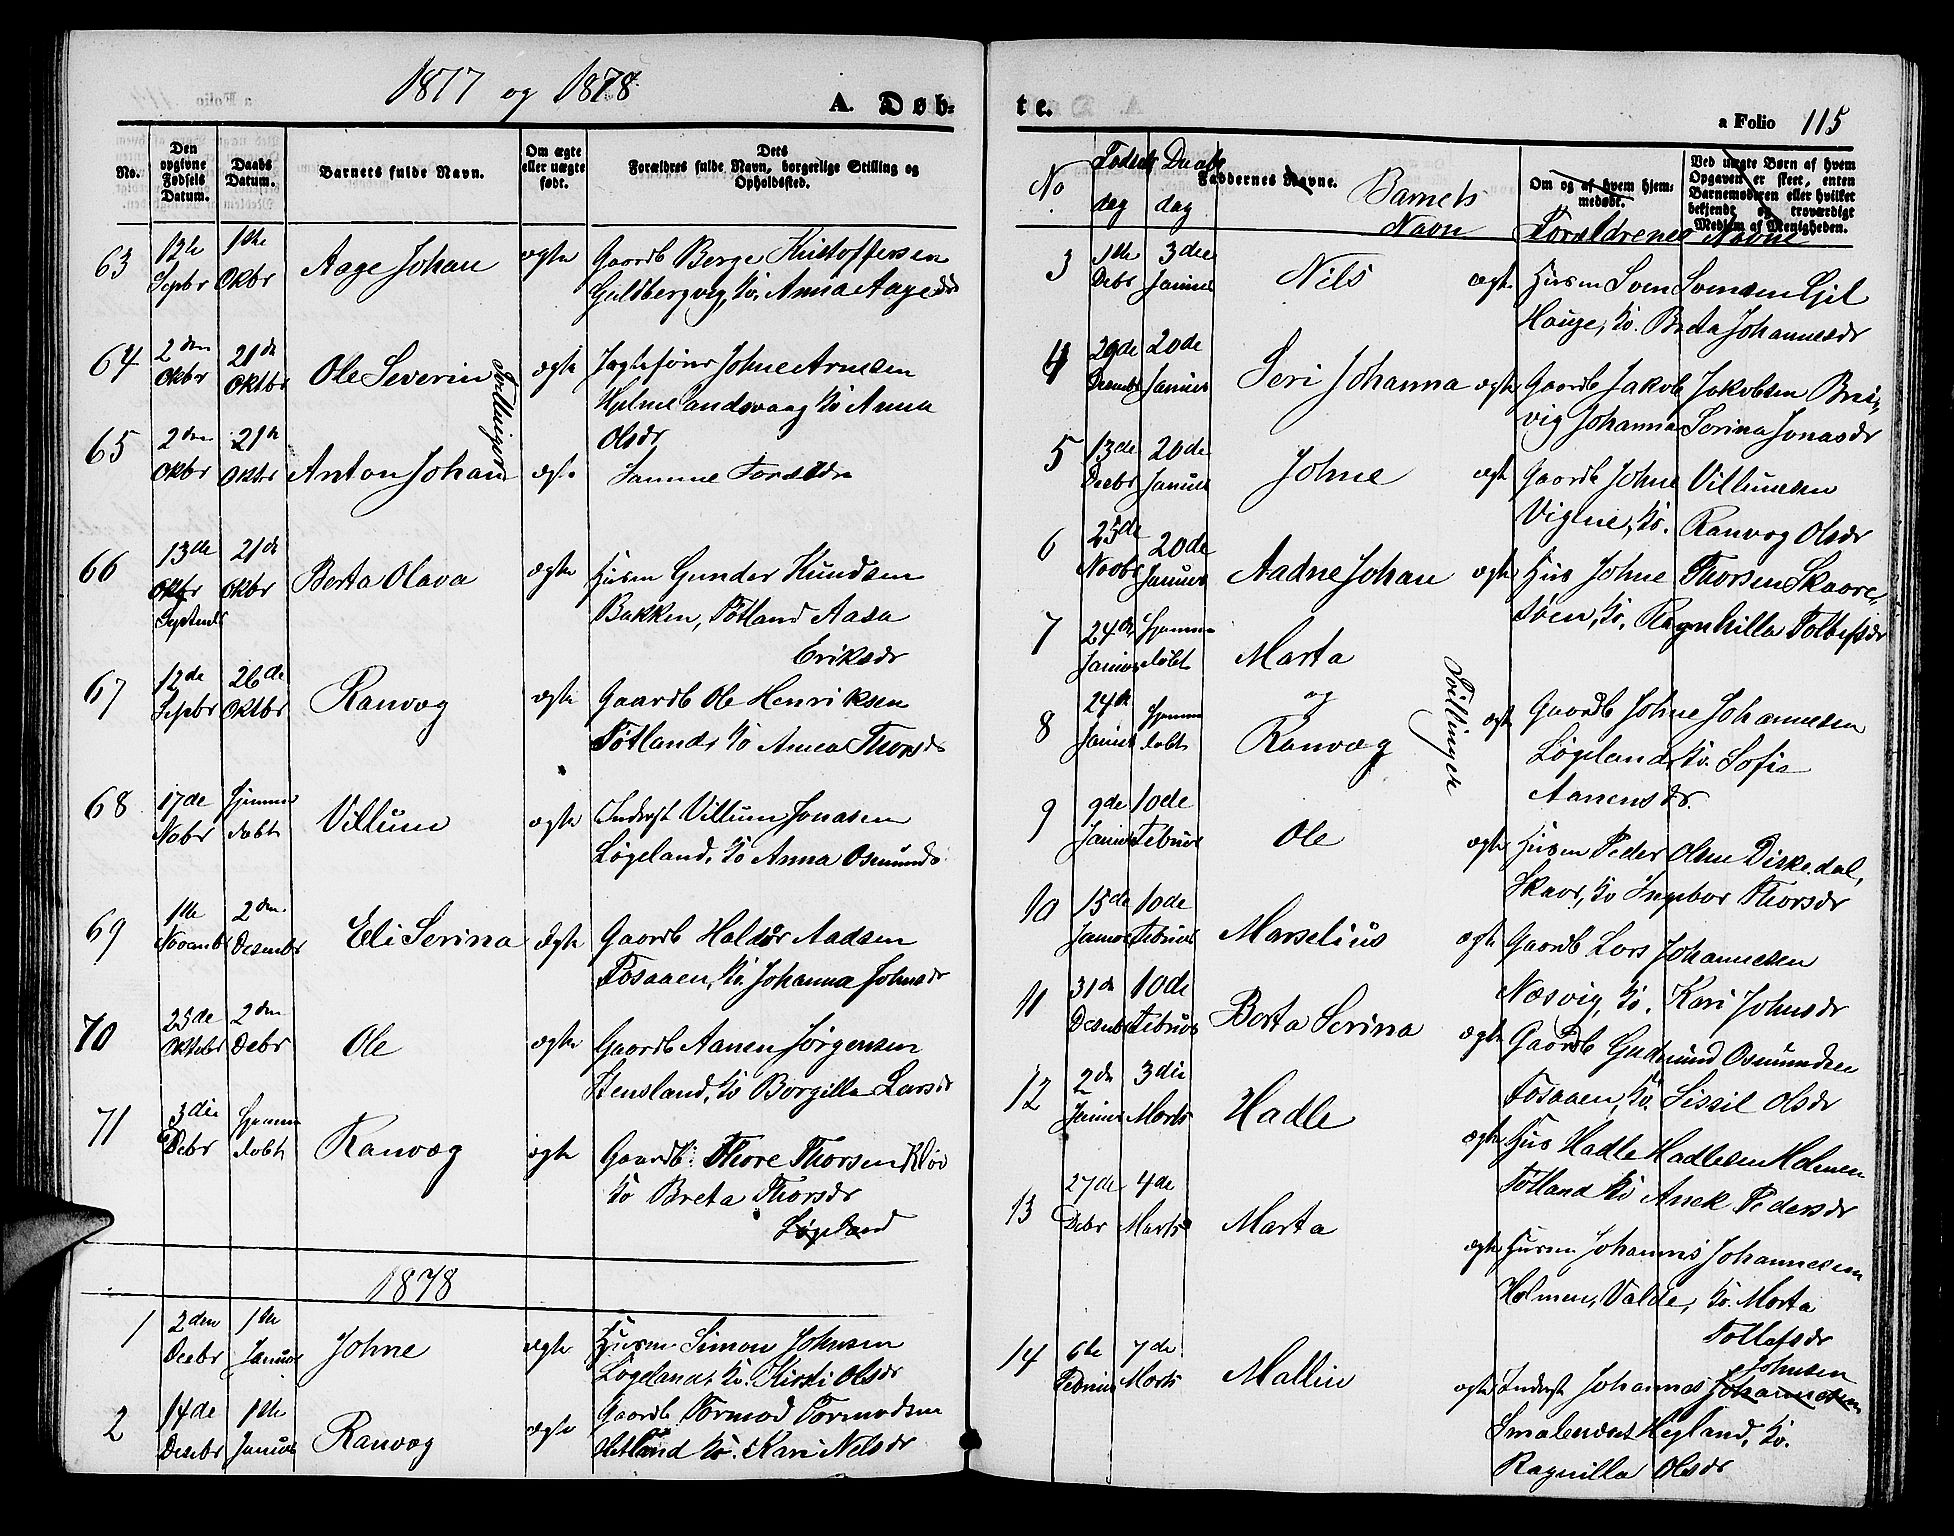 1877 og 1878.
A. Døb-
No.
Den opgivne Fødsels Datum.
Daabs Datum.
Barnets fulde Navn.
Om ægte eller uægte født.
Dets Forældres fulde Navn, borgerlige Stilling og Opholdssted.
63 12te Sepbr 1ste Oktbr Aage Johan ægte Gaardb Berge Kristoffersen
Guldbergvig, Ko. Anna Aagesdr
64 2den Okbr 21de Oktbr Ole Severin ægte Johne Arnesen
Ko Anna
Olsdr
Tvillinger
65 2den Okbr 21de Oktbr Anton Johan ægte Samme Foreldre
66 13de Okbr Septembr 21de Okbr Berta Olava ægte Husm Gunder Knudsen
Bakken, Føtland Aasa
Eriksdr
67 12de Sepbr 26de Oktbr Ranvæg ægte Gaardb Ole Henriksen
Føtland, Ko Anna Thorsdr
68 17de Nobr Hjemme døbt Villum ægte Inderst Villum Jonasen
Løgeland, Ko Anna Osmunds
69 1ste Novembr 2den Desembr Eli Serina Ægte Gaardb Haldor Aadsen
Fosaaen, Ko. Johanna Johnsdr
70 25de Oktobr 2den Debr Ole ægte Gaardb Aanen Jørgensen
Stensland, Ko Borgilla Larsdr
71 3die Debr Hjemme døbt Ranvæg ægte Gaardb: Thore Thorsen Kløv
Ko Breta Thorsdr
Løgeland
1878
1 2den Desbr 1ste Januar Johne ægte Husm Simon Johnsen
Løgeland, Ko. Kirsti Olsdr
2 14de Desbr 1ste Januar Ranvæg ægte Gaardb Tormod Tormodsen
Hetland Ko. Kari Nelsdr
te.
a Folio 115
No
Fødsels dag
Daabs dag
Faddernes Navne.
Barnets Navn
Om og af hvem hjemmedøbt.
Ved uægte Børn af hvem Opgaven er skeet, enten Barnemoderen eller hvilket bekjendt og troværdigt Medlem af Menigheden.
Forældrenes Navne
3 1ste Debr 3die Januar Nils ægte Husm Sven Svensen Gjil
Hauge, Ko. Breta Johannesdr
4 29de Desembr 20de Januar Seri Johanna ægte Gaardb Jakob Jakobsen Brei-
vig Johanna Serina Jonasdr
5 13de Desbr 20de Januar Johne ægte Gaardb Johne Villumsen
Vigene, Ko. Ranvæg Olsdr
6 25de Novbr 20de Januar Aadne Johan ægte Hus Johne Thorsen Skaare-
tøen, Ko. Ragnhilla Tollefsdr
7 24de Januar Hjemme døbt Marta
og
8 24de Januar Hjemme døbt Ranvæg
Tvillinger
ægte Gaardb Johne Johannesen
Løgeland, Ko. Sofie
Aanensdr.
9 9de Januar 10de Februar Ole ægte Husm Peder Olsen Diskedal,
Skaar, Ko Ingebor Thorsdr
10 15de Januar 10de Februar Marselius ægte Gaardb Lars Johannesen
Næsvig, Ko. Kari Johnsdr
11 31de Desembr 10de Februar Berta Serina ægte Gaardb Gudmund Osmundsen
Fosaaen, Ko. Sissil Olsdr
12 2de Januar 3die Marts Hadle ægte Hus Hadle Hadlesen Holmen
Føtland Ko Anek Pedersdr
13 27de Debr 4de Marts Marta ægte Husm Johannis Johannesen
Holmen, Valde, Ko. Marta
Tollefsdr
14 6te Februar 7de Marts Mallin ægte Inderst Johannes Johannesen Johnsen
Smalenæset Hegland, Ko.
Ragnilla Olsdr